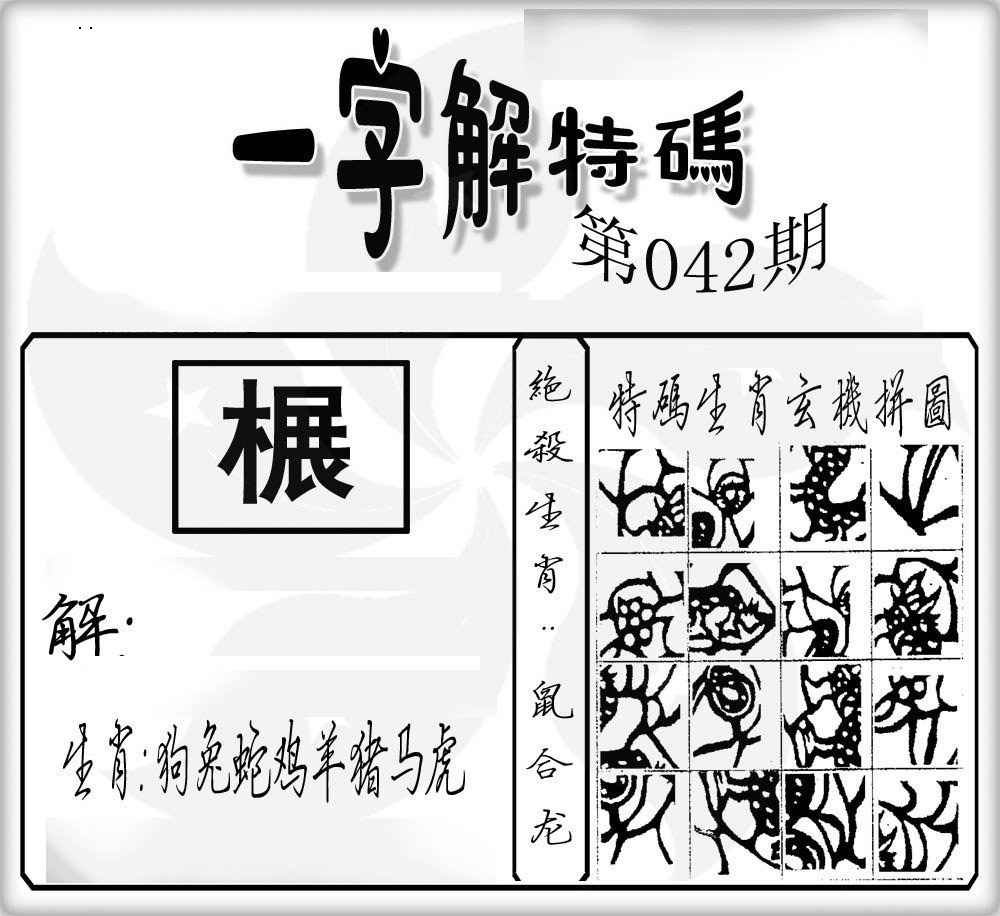 一字解特碼
第042期
榐
解.
生肖:狗兔蛇鸡羊猪马虎
絶殺生肖:鼠合龙
特碼生肖玄機拼圖